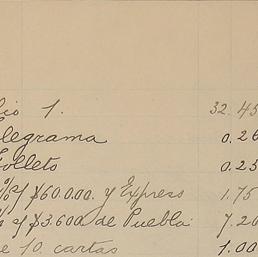 lio 1. 32.45
legrama 0.26
Folleto 0.25
%s/ $60.000. y Express 1.75
s/ $3.600 de Puebla 7.20
e 10 cartas 1.00